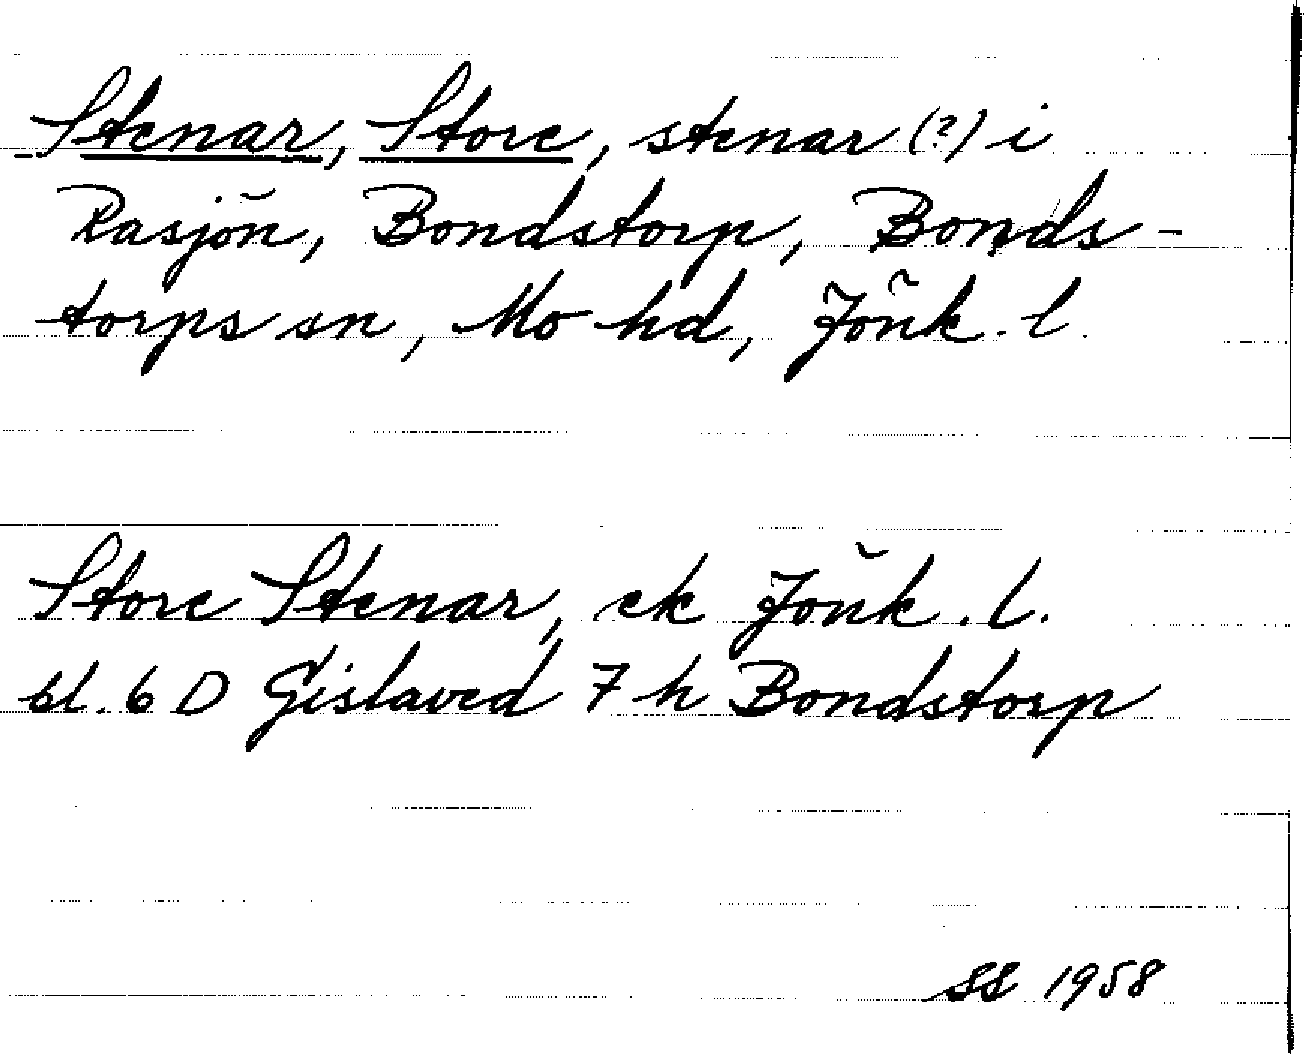 Stenar, Store, stenar (?) i
Rasjön, Bondstorp, Bonds-
torps sn, Mo hd, Jönk. l.
Store Stenar, ek Jönk. l.
bl. 6 D Gislaved 7 h Bondstorp
SS 1958